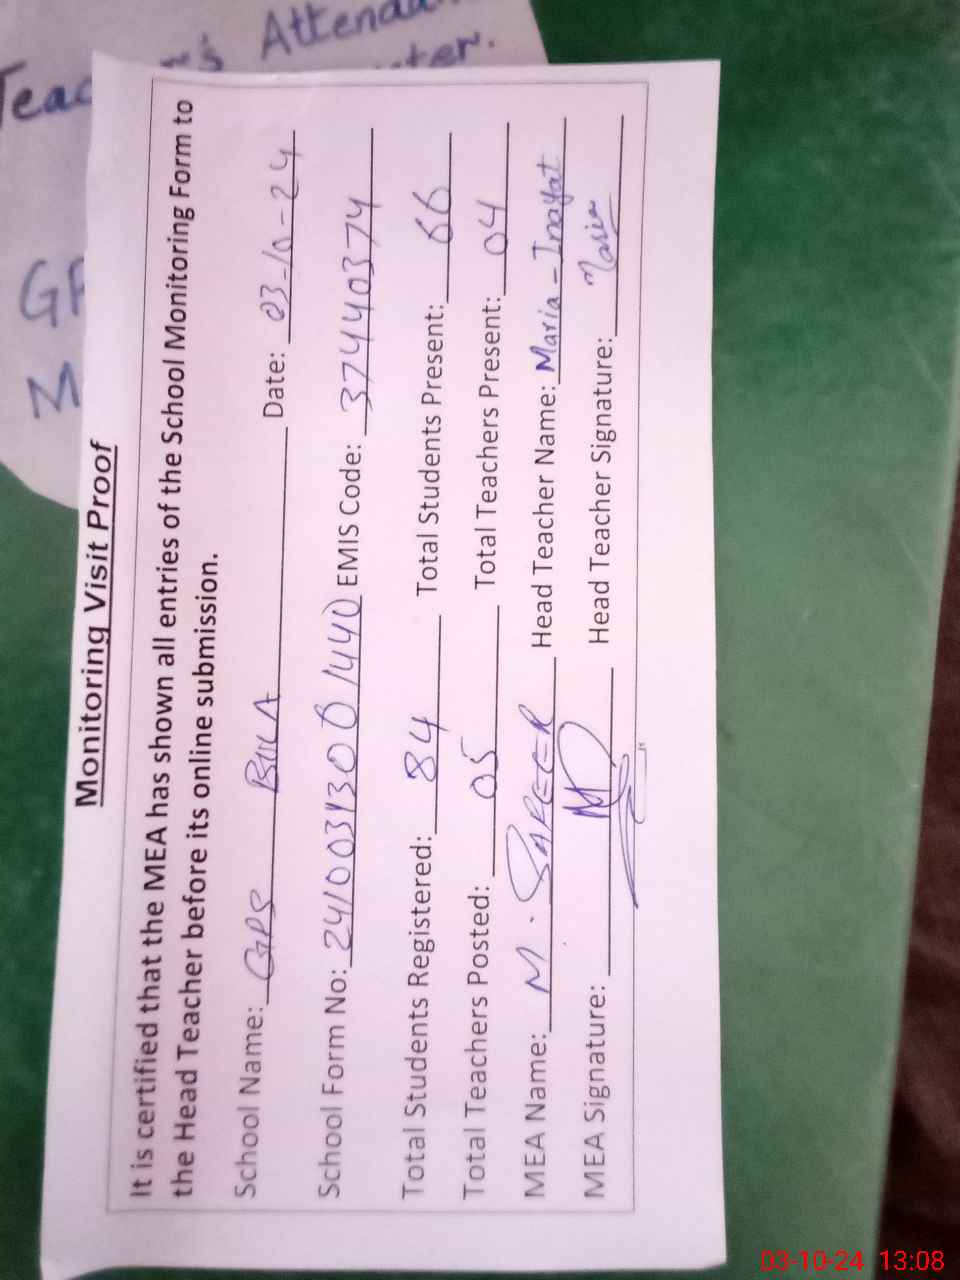 Teacher's Attenda
GP
M
Monitoring Visit Proof
It is certified that the MEA has shown all entries of the School Monitoring Form to
the Head Teacher before its online submission.
School Name: GPS BILLA Date: 03-10-24
School Form No: EMIS Code: 37440374
Total Students Registered: 84 Total Students Present: 66
Total Teachers Posted: 05 Total Teachers Present: 04
MEA Name: M. SAFEER Head Teacher Name: Maria-Inayat
MEA Signature: Head Teacher Signature: Maria
03-10-24 13:08